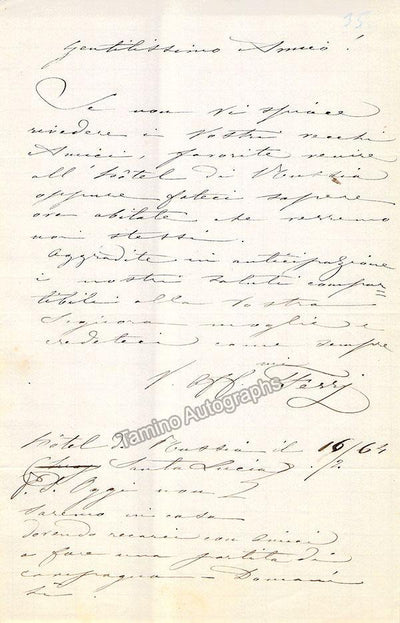 35
Gentilissimo Amico!
Se non vi spiace
rivedere i vostri vecchi
Amici, favorite venire
all'hôtel di Russia
oppure fateci sapere
ove abitate che verremo
noi stessi.
Aggradite in anticipazione
i nostri saluti compar=
tibili alla vostra
Signora moglie e
credeteci come sempre
V. Ferrj
Tamino Autographs
hôtel di Russia il 16/64
Santa Lucia
P.S. Oggi non
saremo in casa
dovendo recarci con amici
a fare una partita di
campagna — Domani
si.